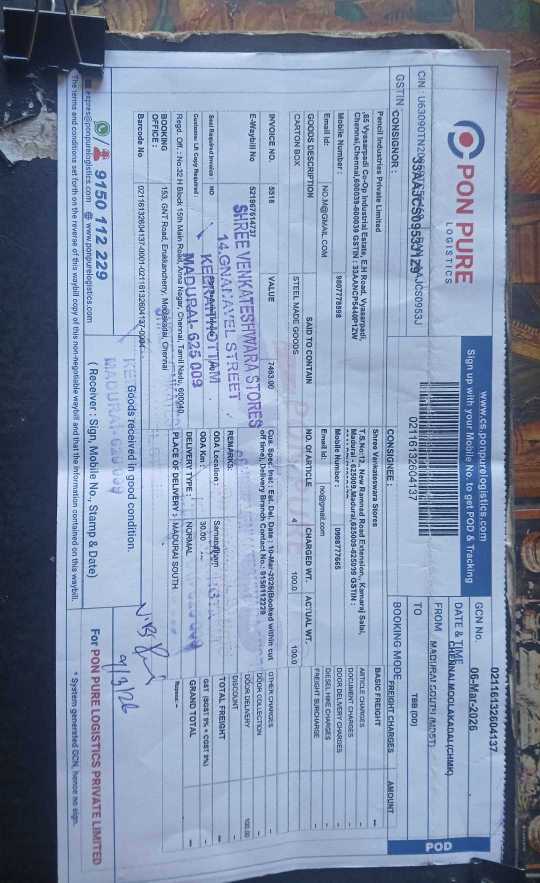 PON PURE
LOGISTICS
CIN : U63090TN20
GSTIN : 33AAJCS0953J1Z9
www.cs.ponpurelogistics.com
Sign up with your Mobile No. to get POD & Tracking
02116132604137
GCN No.
02116132604137
DATE & TIME
06-Mar-2026
FROM
CHENNAI MOOLAKADAI (CHMK)
TO
MADURAI SOUTH (MDST)
BOOKING MODE
TBB (DD)
POD
CONSIGNOR :
Pencil Industries Private Limited
,85 Vyasarpadi Co-Op Industrial Estate, E.H Road, Vyasarpadi,
Chennai,Chennai,600039-600039 GSTIN : 33AANCP5440P1ZW
Mobile Number :
9807778898
Email Id:
NO.M@GMAIL.COM
CONSIGNEE :
Shree Venkateswara Stores
T.S.No:12, New Ramnad Road Extension,, Kamaraj Salai,
Madurai - 625009,Madurai,625009-625009 GSTIN :
Mobile Number :
0998777665
Email Id:
no@gmail.com
GOODS DESCRIPTION
SAID TO CONTAIN
NO. OF ARTICLE
CHARGED WT.
ACTUAL WT.
CARTON BOX
STEEL MADE GOODS
4
100.0
100.0
FREIGHT CHARGES
AMOUNT
BASIC FREIGHT
ARTICLE CHARGES
DOCUMENT CHARGES
DOOR DELIVERY CHARGES
DIESEL HIKE CHARGES
FREIGHT SURCHARGE
OTHER CHARGES
DOOR COLLECTION
DOOR DELIVERY
100.00
DISCOUNT
TOTAL FREIGHT
GST (SGST 9% + CGST 9%)
GRAND TOTAL
INVOICE NO.
5518
VALUE
7463.00
E-Waybill No
521967614737
Cus. Spec. Inst : Est. Del. Date : 10-Mar-2026(Booked within cut
off time),Delivery Branch Contact No.: 9150112229
REMARKS:
SHREE VENKATESHWARA STORES
14,GNANAVEL STREET
KEERAITHOTTAM
MADURAI- 625 009
Seal Required Invoice : NO
Customer LR Copy Required
ODA Location :
Samanatham
ODA Km :
30.00
DELIVERY TYPE :
NORMAL
PLACE OF DELIVERY :
MADURAI SOUTH
Regd. Off. : No.32 H Block 15th Main Road, Anna Nagar, Chennai, Tamil Nadu, 600040.
BOOKING
OFFICE :
153, GNT Road, Erukkancherry, Moolakadai, Chennai
Barcode No.
02116132604137-0001-02116132604137-0004
Goods received in good condition.
MADURAI-625009
( Receiver : Sign, Mobile No., Stamp & Date)
9/3/26
9150 112 229
express@ponpurelogistics.com
www.ponpurelogistics.com
For PON PURE LOGISTICS PRIVATE LIMITED
The terms and conditions set forth on the reverse of this waybill copy of this non-negotiable waybill and that the information contained on this waybill.
* System generated GCN, hence no sign.